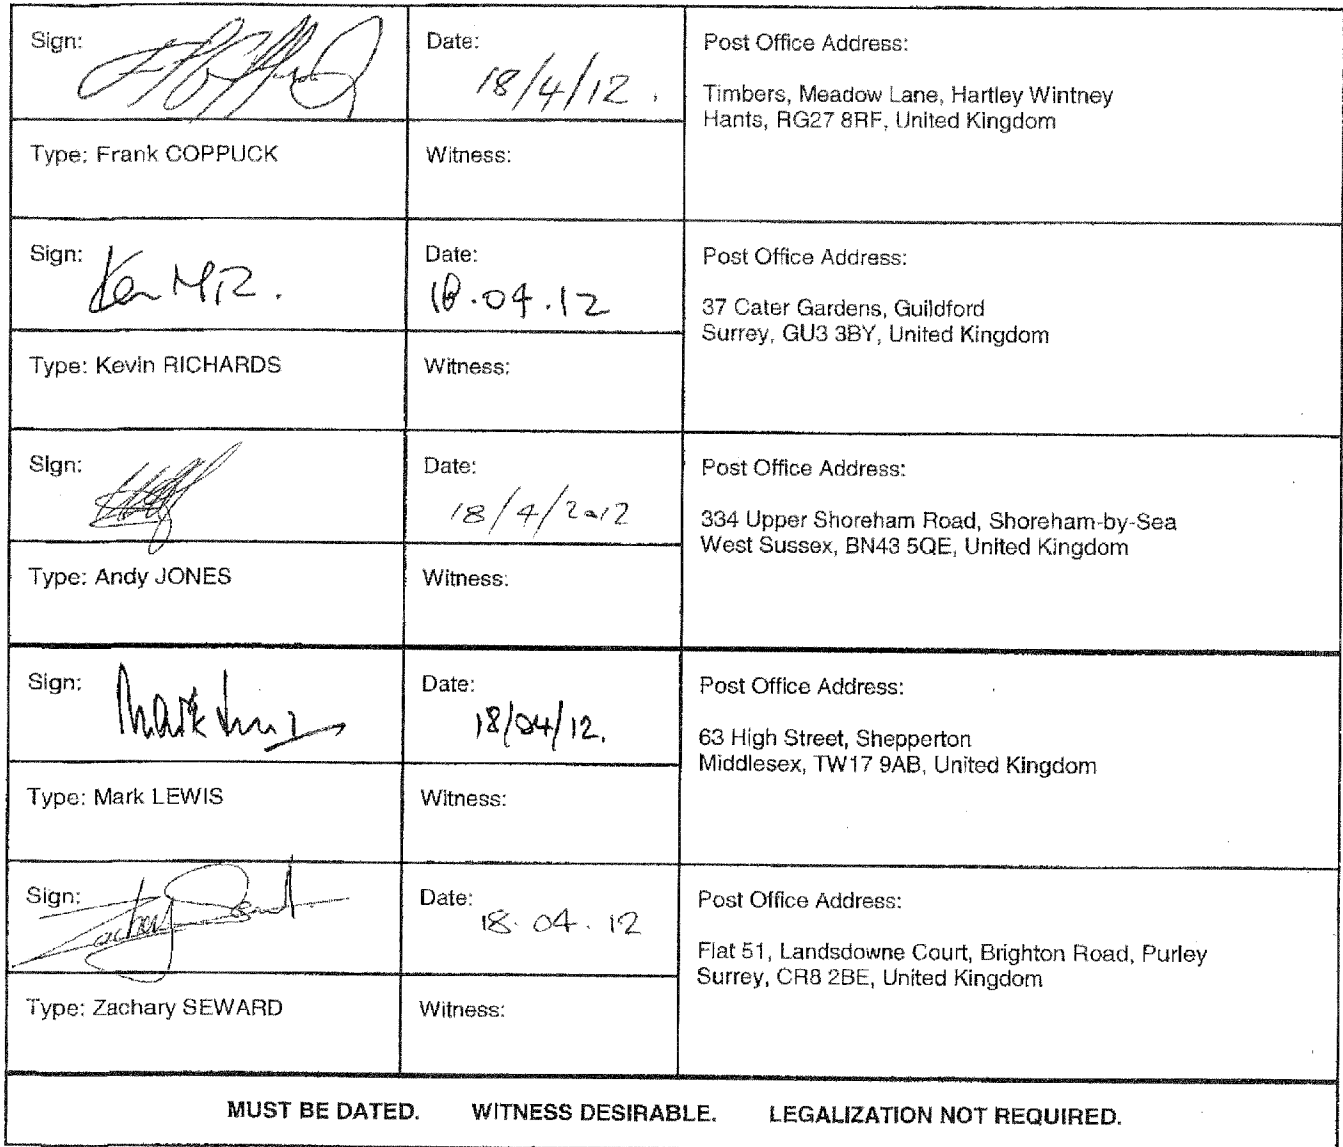 Sign:
Date:
18/4/12.
Post Office Address:
Timbers, Meadow Lane, Hartley Wintney
Hants, RG27 8RF, United Kingdom
Type: Frank COPPUCK
Witness:
Sign:
Date:
18.04.12
Post Office Address:
37 Cater Gardens, Guildford
Surrey, GU3 3BY, United Kingdom
Type: Kevin RICHARDS
Witness:
Sign:
Date:
18/4/2012
Post Office Address:
334 Upper Shoreham Road, Shoreham-by-Sea
West Sussex, BN43 5QE, United Kingdom
Type: Andy JONES
Witness:
Sign: Mark Lewis
Date:
18/04/12.
Post Office Address:
63 High Street, Shepperton
Middlesex, TW17 9AB, United Kingdom
Type: Mark LEWIS
Witness:
Sign: Zachary Seward
Date:
18.04.12
Post Office Address:
Flat 51, Landsdowne Court, Brighton Road, Purley
Surrey, CR8 2BE, United Kingdom
Type: Zachary SEWARD
Witness:
MUST BE DATED. WITNESS DESIRABLE. LEGALIZATION NOT REQUIRED.